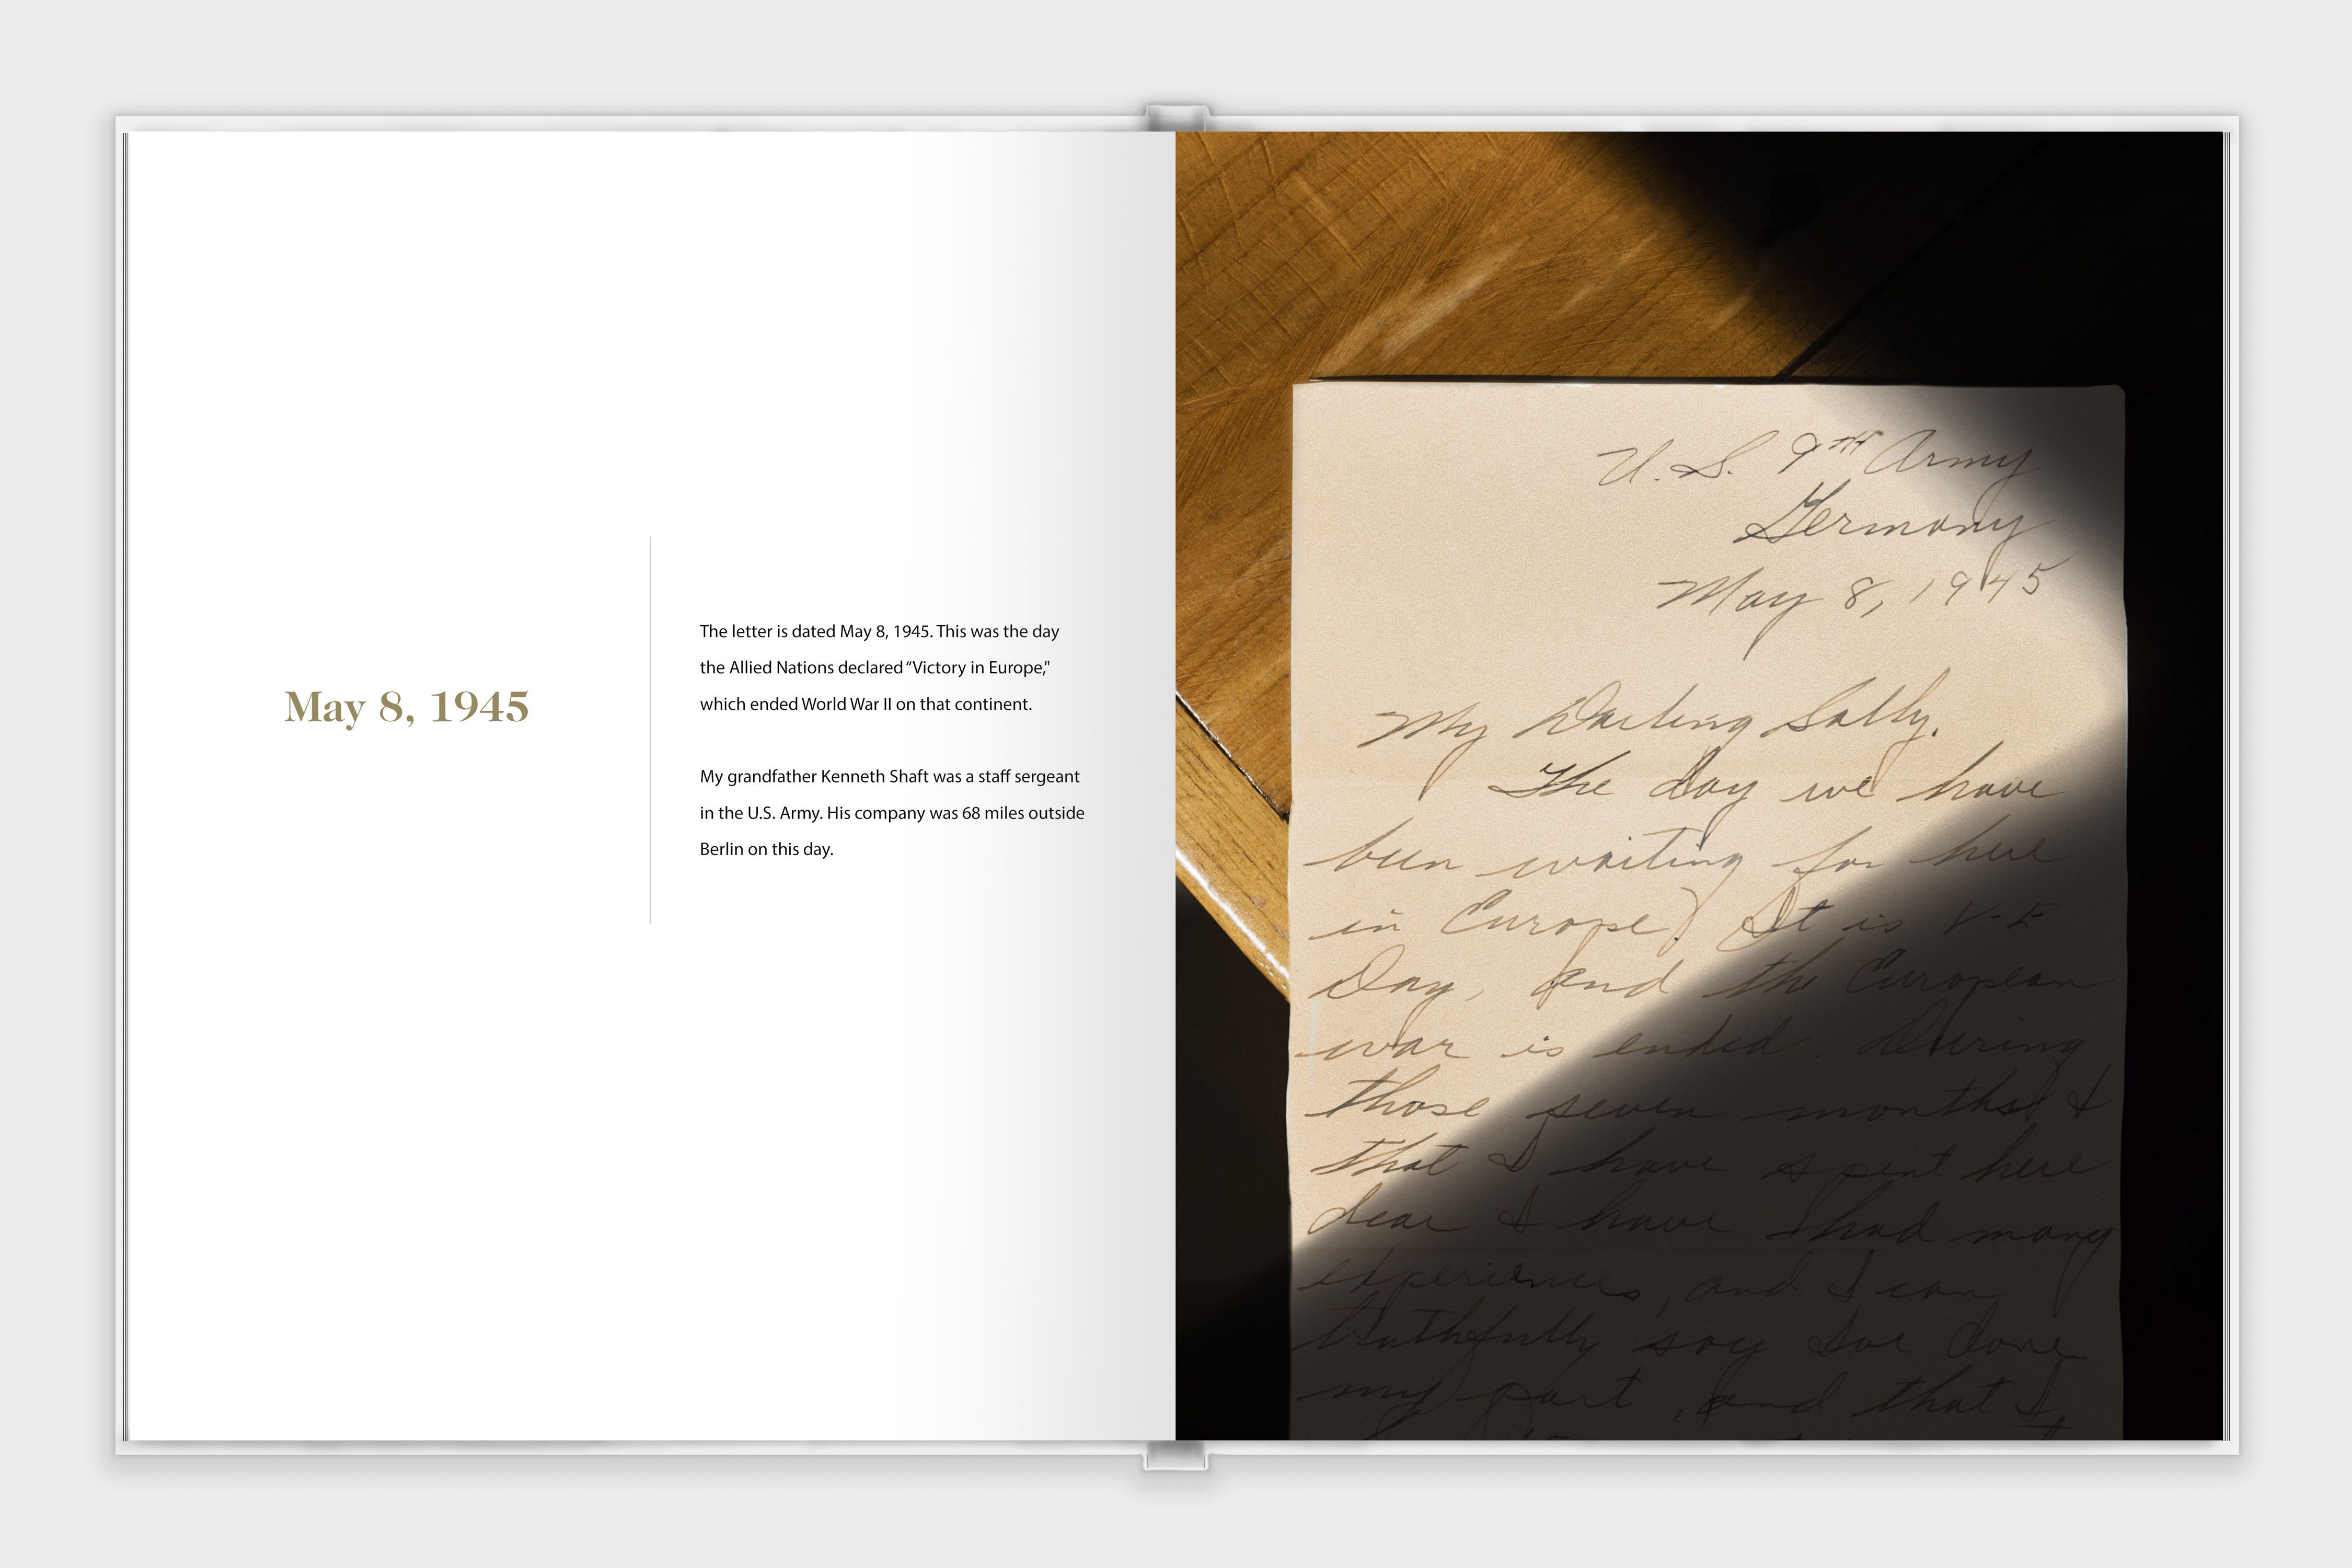 May 8, 1945
The letter is dated May 8, 1945. This was the day
the Allied Nations declared “Victory in Europe,"
which ended World War II on that continent.
My grandfather Kenneth Shaft was a staff sergeant
in the U.S. Army. His company was 68 miles outside
Berlin on this day.
U.S. 9TH Army
Germany
May 8, 1945
My Darling Sally,
The day we have
been waiting for here
in Europe. It is V-E
Day, and the European
war is ended. During
those seven months
that I have spent here
dear I have had many
experiences, and I can
truthfully say I've done
my part, and that I